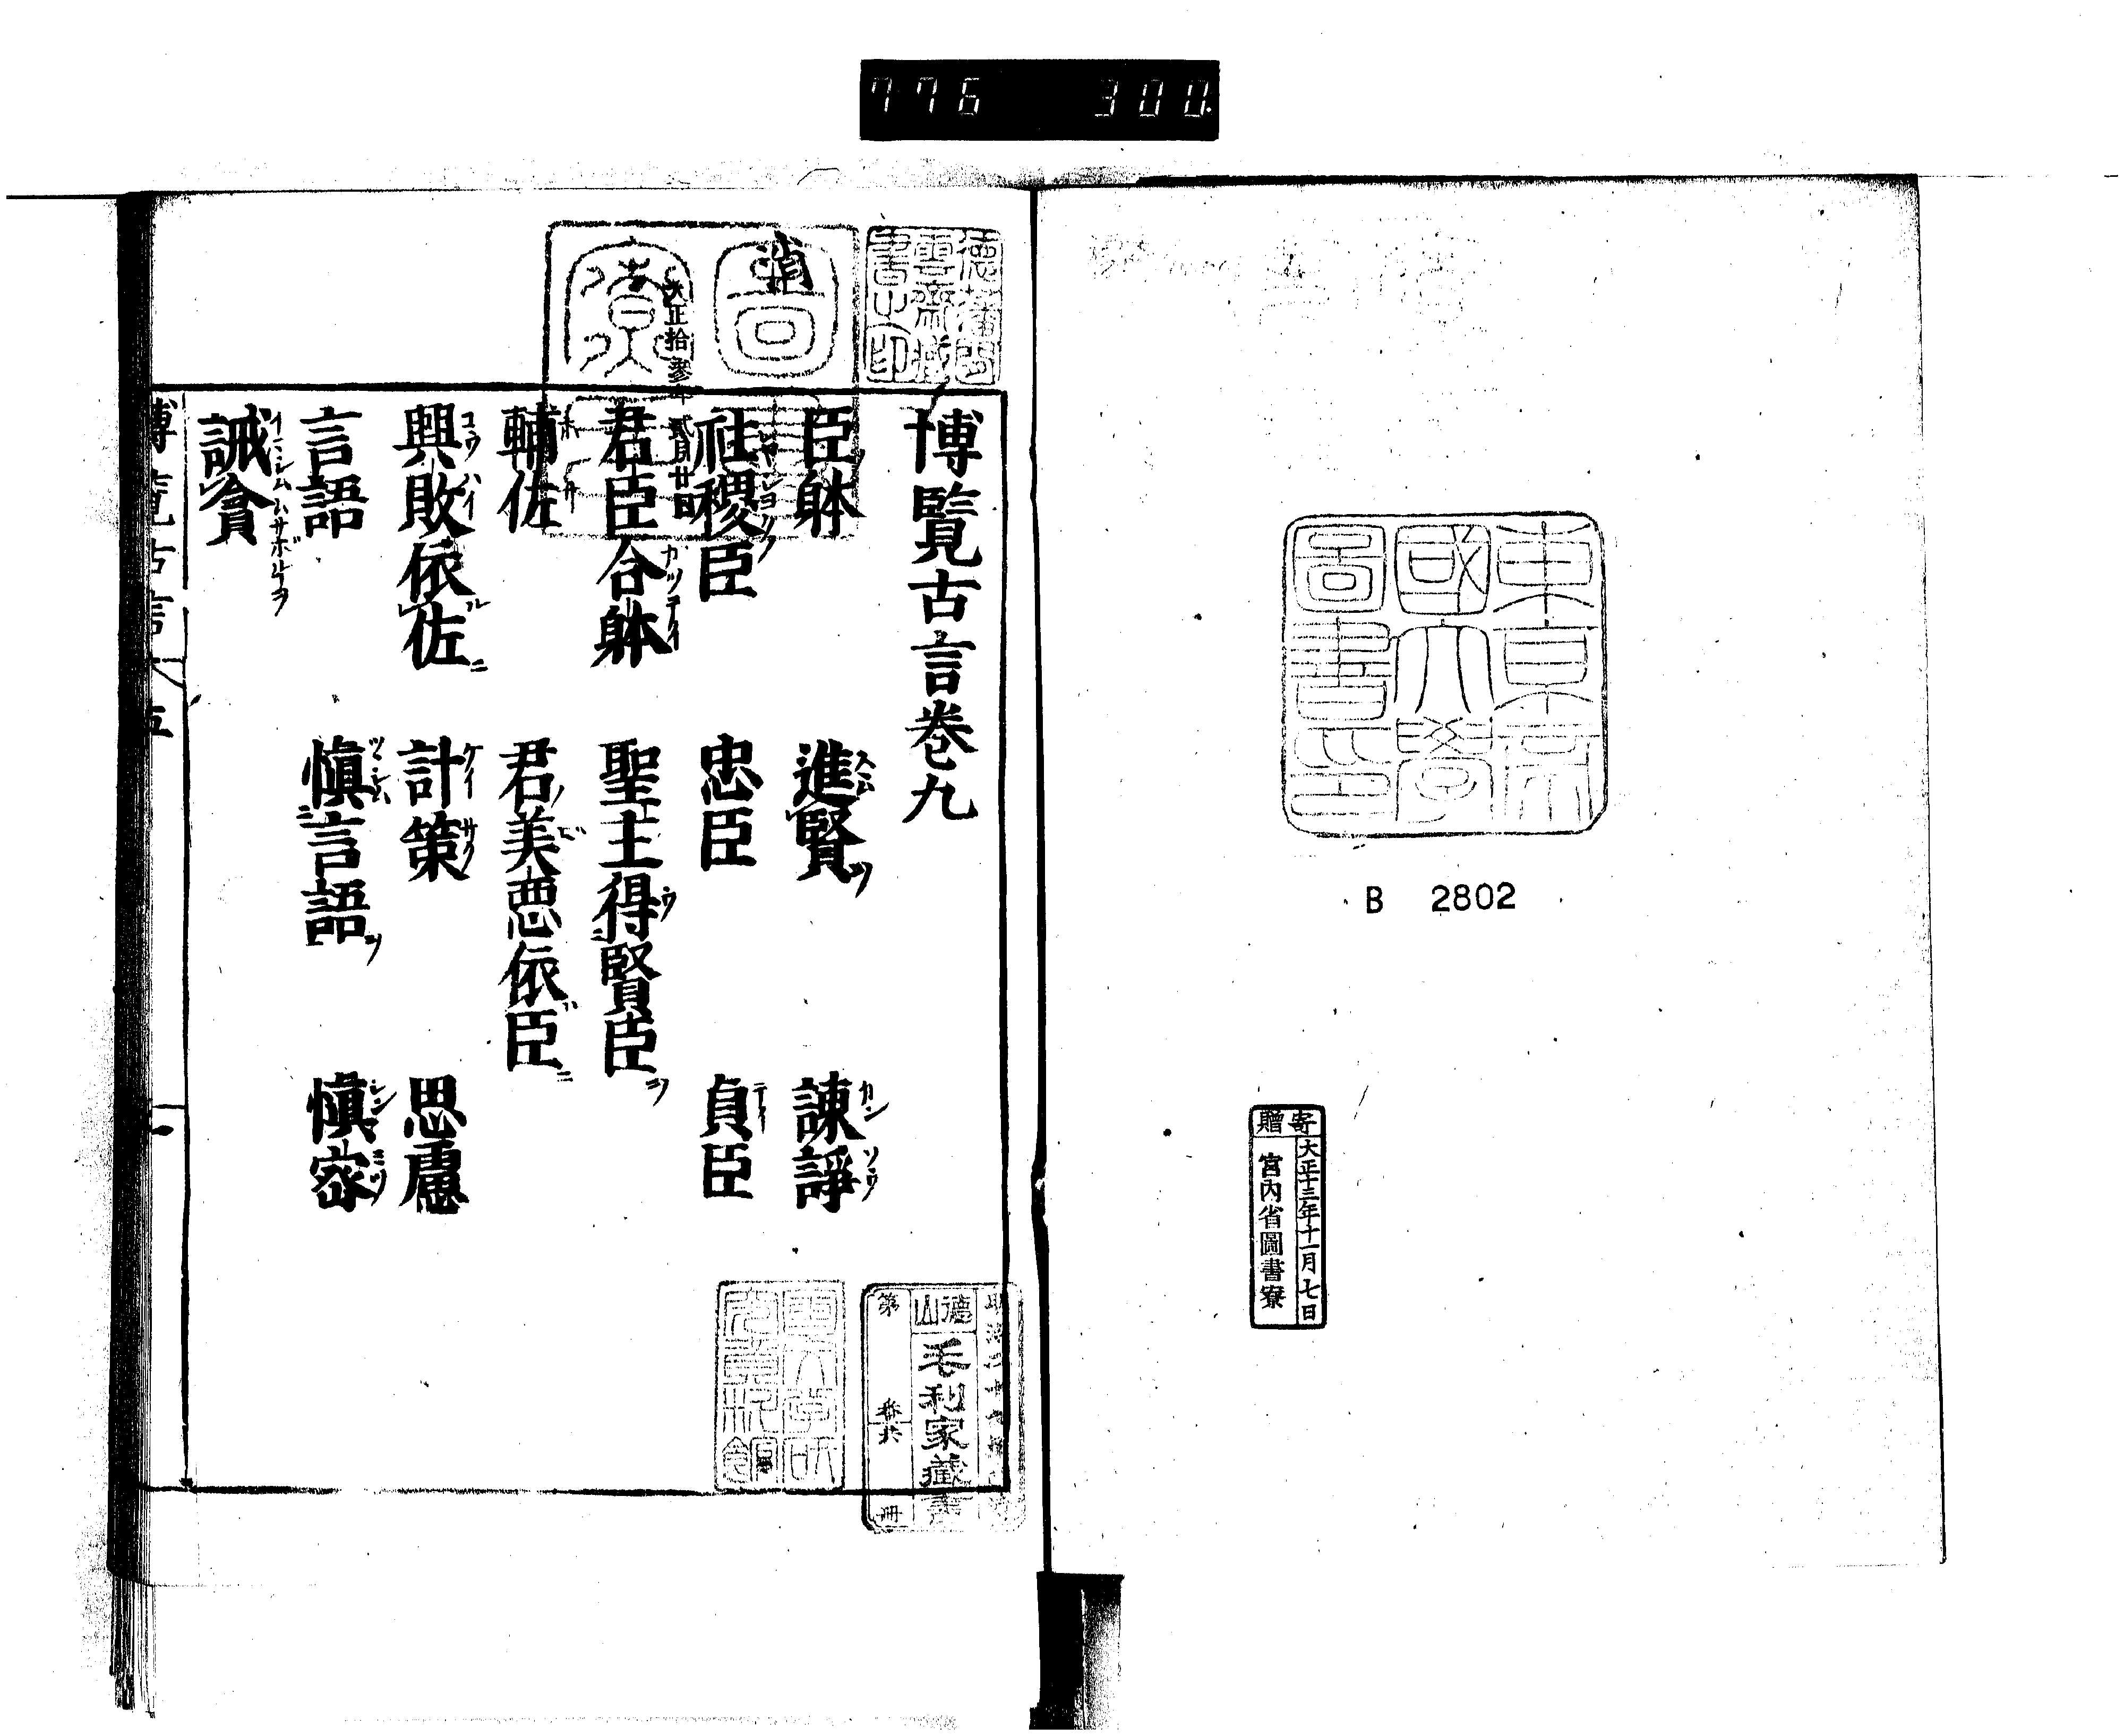 776 300
東京帝
國大學
圖書印
B 2802
寄贈
大正十三年十一月七日
宮内省圖書寮
德藩
藏
書之印
大正拾參年貳月廿日
博覽古言巻九
臣躰 進賢ヲ 諌諍
社稷臣 忠臣 貞臣
君臣合躰 聖主得賢臣ヲ
輔佐 君美惡依臣ニ
興敗依佐ニ 計策 思慮
言語 慎言語ヲ 慎密
誡貪
博覽古言
德山
毛利家藏書
第
番共
冊